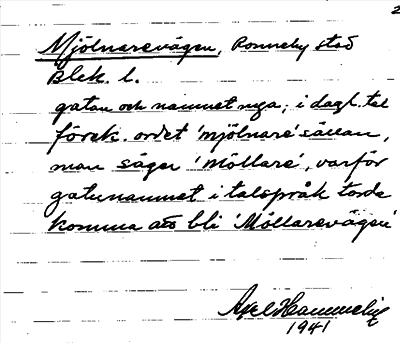 2
Mjölnarevägen, Ronneby stad
Blek. l.
gatan och namnet nya; i dagl. tal
förek. ordet 'mjölnare' sällan,
man säger 'möllare', varför
gatunamnet i talspråk torde
komma att bli 'Möllarevägen'
Axel
1941